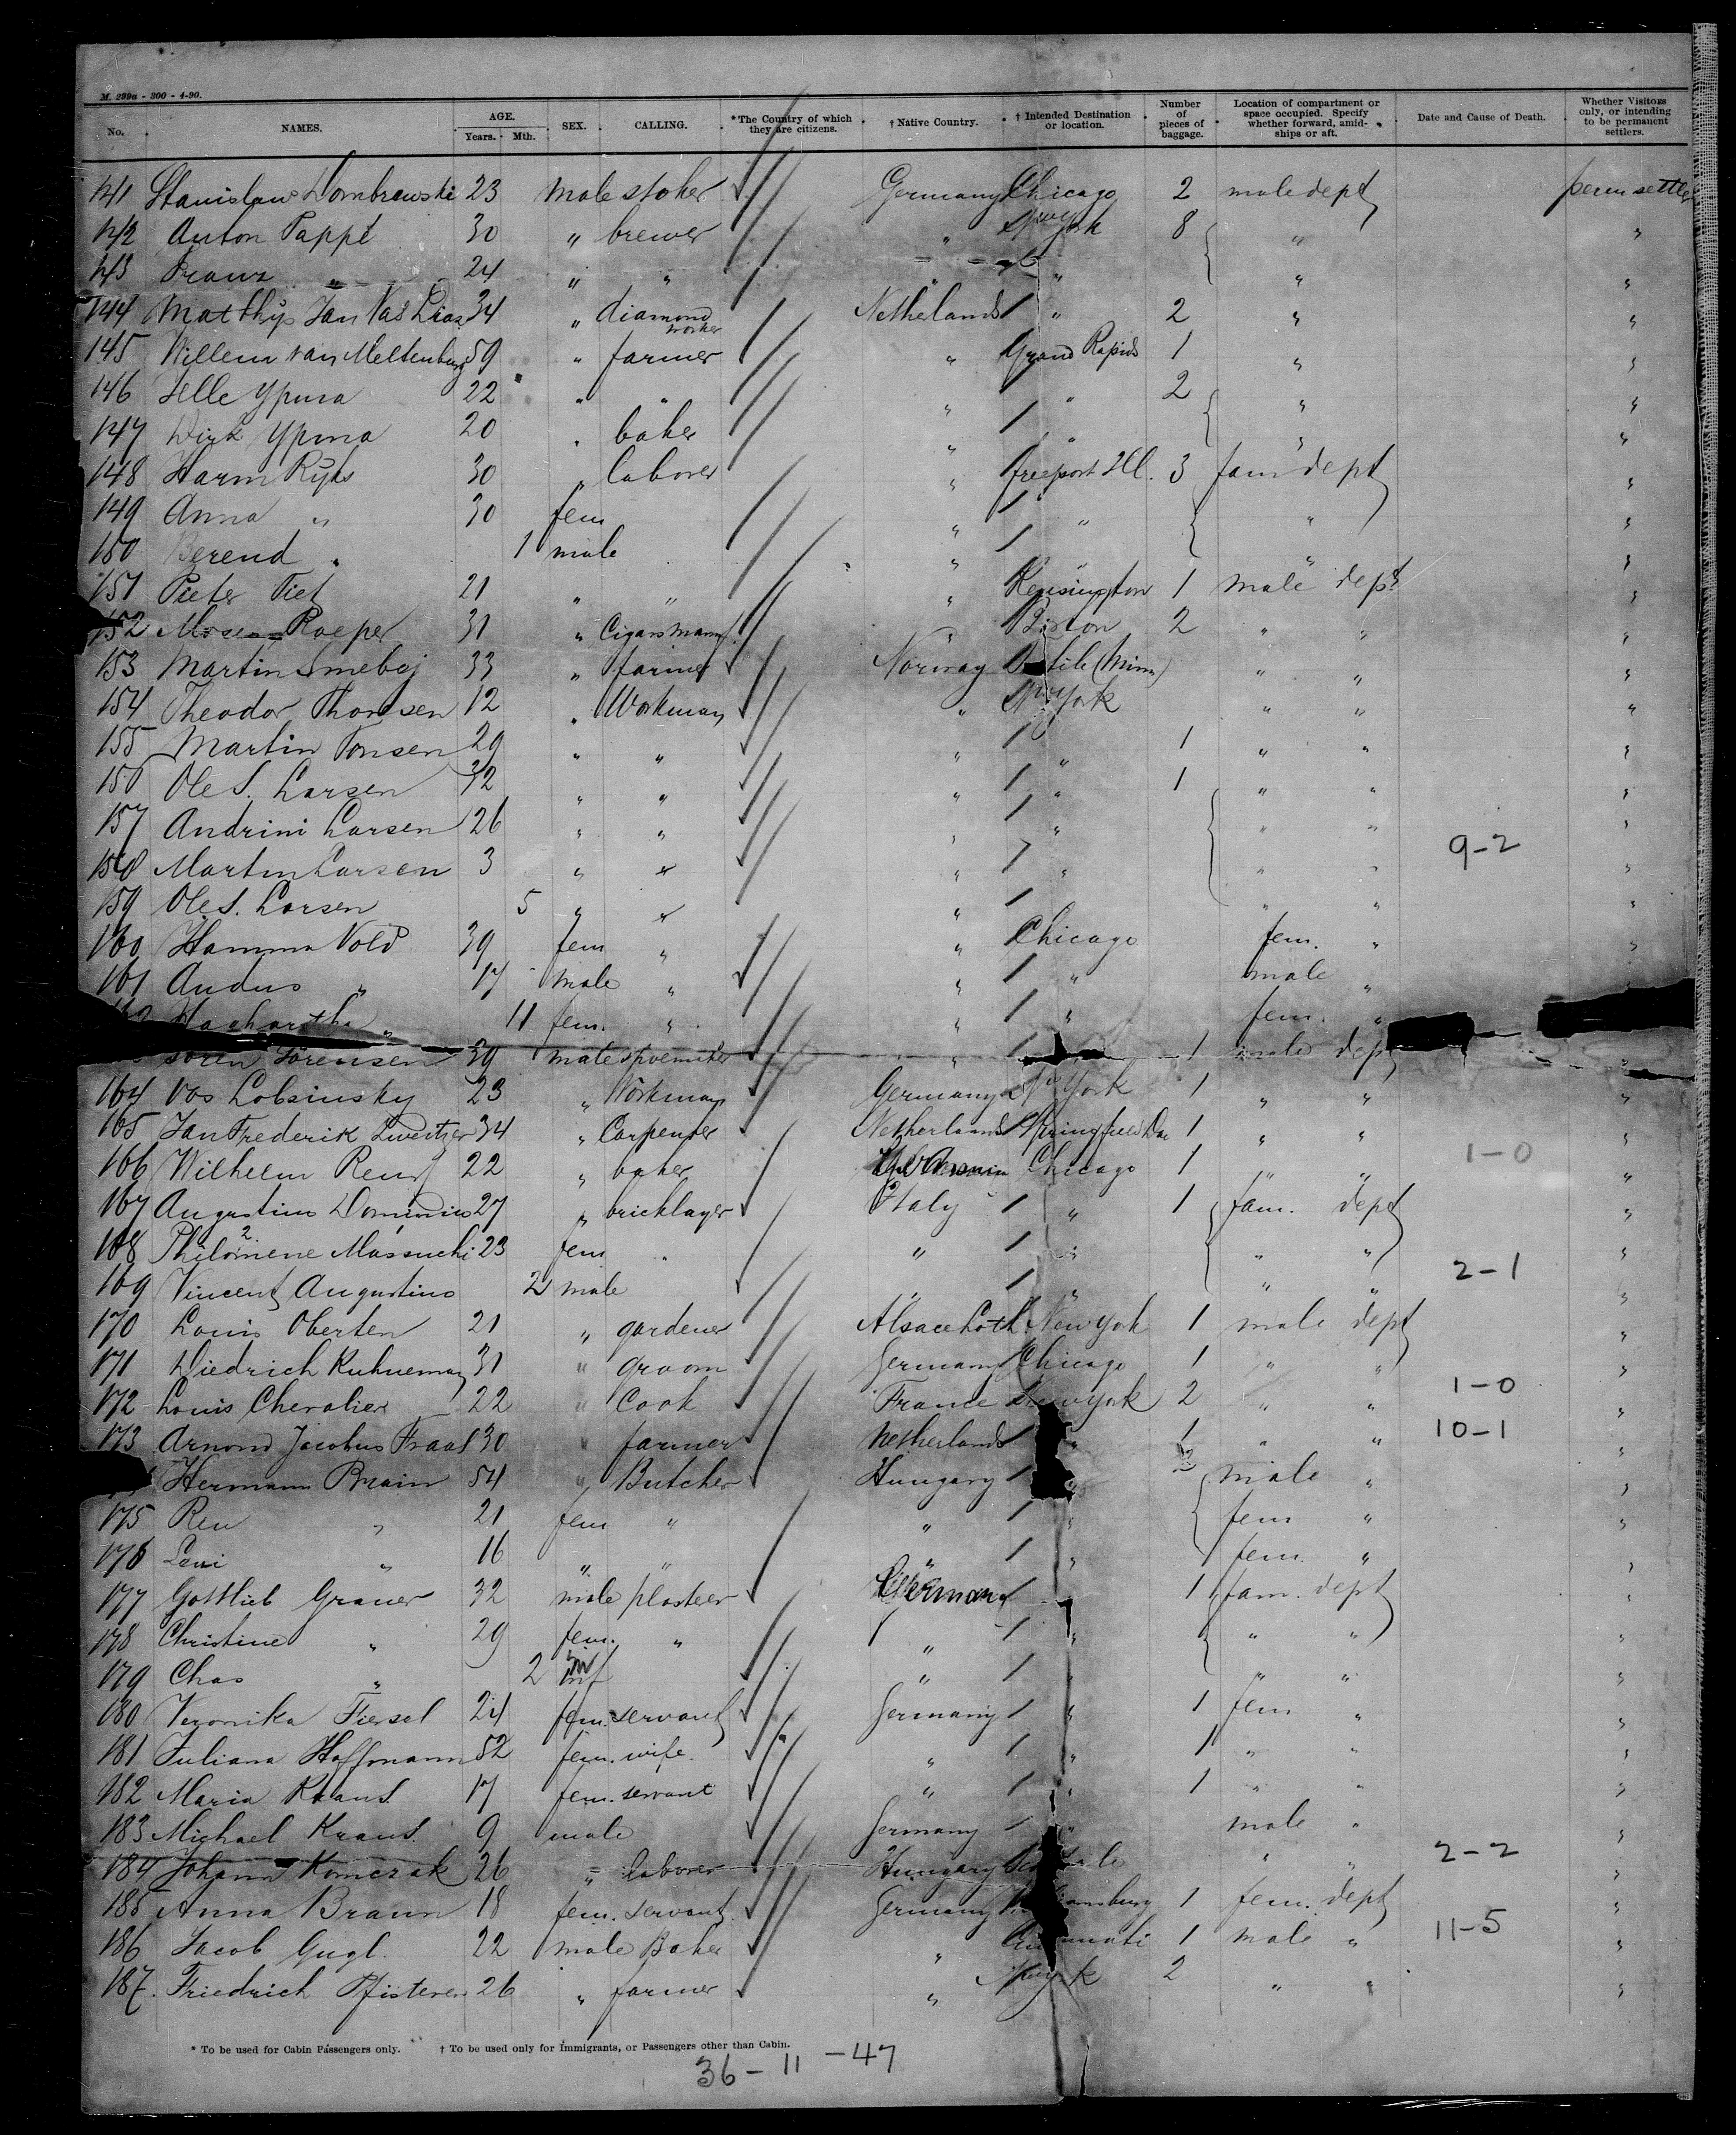 M. 299a - 300 - 4-90.
No. NAMES. AGE. Years. Mth. SEX. CALLING. *The Country of which they are citizens. † Native Country. † Intended Destination or location. Number of pieces of baggage. Location of compartment or space occupied. Specify whether forward, amidships or aft. Date and Cause of Death. Whether Visitors only, or intending to be permanent settlers.
141 Stanislaus Dombrowski 23 male stoker Germany Chicago 2 male dept perm settler
142 Anton Pappe 30 " brewer " N York 8 " "
143 Franz " 24 " " " " " "
144 Matthys Jan Vas Dias 34 " diamond worker Netherlands " 2 " "
145 Willem van Meltenburg 59 " farmer " Grand Rapids 1 " "
146 Jelle Ypma 22 " " " " 2 " "
147 Dirk Ypma 20 " baker " " " "
148 Harm Ryks 30 " laborer " freeport Ill. 3 fam dept "
149 Anna " 30 fem " " " "
150 Berend " 1 male " " " "
151 Pieter Tiet 21 " " " Kensington 1 male dept "
152 Moses Roeper 31 " Cigarsmanf. " Boston 2 " " "
153 Martin Smeboj 33 " farmer Norway (Minn) " " "
154 Theodor Thomsen 12 " Workman " N York " " "
155 Martin Tonsen 29 " " " " 1 " " "
156 Ole S. Larsen 32 " " " " 1 " " "
157 Andrini Larsen 26 " " " " " " "
158 Martin Larsen 3 " " " " " " 9-2 "
159 Ole S. Larsen 5 " " " " " "
160 Hamma Vold 39 fem " " Chicago fem. " "
161 Andus " 17 male " " " male " "
11 fem. " " " fem. "
Soren Sörensen 39 male " 1 male dept "
164 Vos Lobsinsky 23 " Workman Germany N York 1 " " "
165 Jan Frederik Zweitzer 34 " Carpenter Netherlands Springfield Da 1 " " "
166 Wilhelm Renz 22 " baker Chicago 1 " " 1-0 "
167 Augustino Dominico 27 " bricklayer Italy " 1 fam. dept "
168 Philomene Massuchi 23 fem " " " " " "
169 Vincent Augustino 2 male " " " " 2-1 "
170 Louis Oberten 21 " gardener Alsace Loth. New York 1 male dept "
171 Diedrich Kuhneman 31 " groom Germany Chicago 1 " " "
172 Louis Chevalier 22 " Cook France New York 2 " " 1-0 "
173 Arnond Jacobus Fraas 30 " farmer Netherlands " 1 " " 10-1 "
Hermann Brain 54 " Butcher Hungary " male " "
175 Ren " 21 fem " " " fem " "
176 Leni " 16 " " " " fem. " "
177 Gottlieb Grauer 32 male plasterer German " 1 fam. dept "
178 Christine " 29 fem. " " " " " "
179 Chas " 2 inf " " " "
180 Veronika Fiersel 24 fem. servant Germany " 1 fem " "
181 Juliana Hoffmann 52 fem. wife. " " 1 " " "
182 Maria Kraus. 17 fem. servant " " 1 " " "
183 Michael Kraus. 9 male Germany " male " "
184 Johann Komczak 26 " laborer Hungary " " 2-2 "
185 Anna Braun 18 fem. servant. Germany 1 fem. dept "
186 Jacob Gugl. 22 male Baker " 1 male " 11-5 "
187. Friedrich Pfisterer 26 " farmer " N York 2 " " "
* To be used for Cabin Passengers only. † To be used only for Immigrants, or Passengers other than Cabin.
36 - 11 - 47